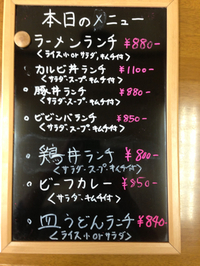 本日のメニュー
ラーメンランチ ¥880-
<ライス小orサラダ,キムチ付>
○ カルビ丼ランチ ¥1100-
<サラダ・スープ・キムチ付>
○ 豚丼ランチ ¥880
<サラダ・スープ・キムチ付>
○ ビビンバランチ ¥850-
<サラダ・スープ・キムチ付>
○ 鶏丼ランチ ¥800-
<サラダ・スープ・キムチ付>
○ ビーフカレー ¥850
<サラダ,キムチ付>
○ 皿うどんランチ ¥890-
<ライス小orサラダ>